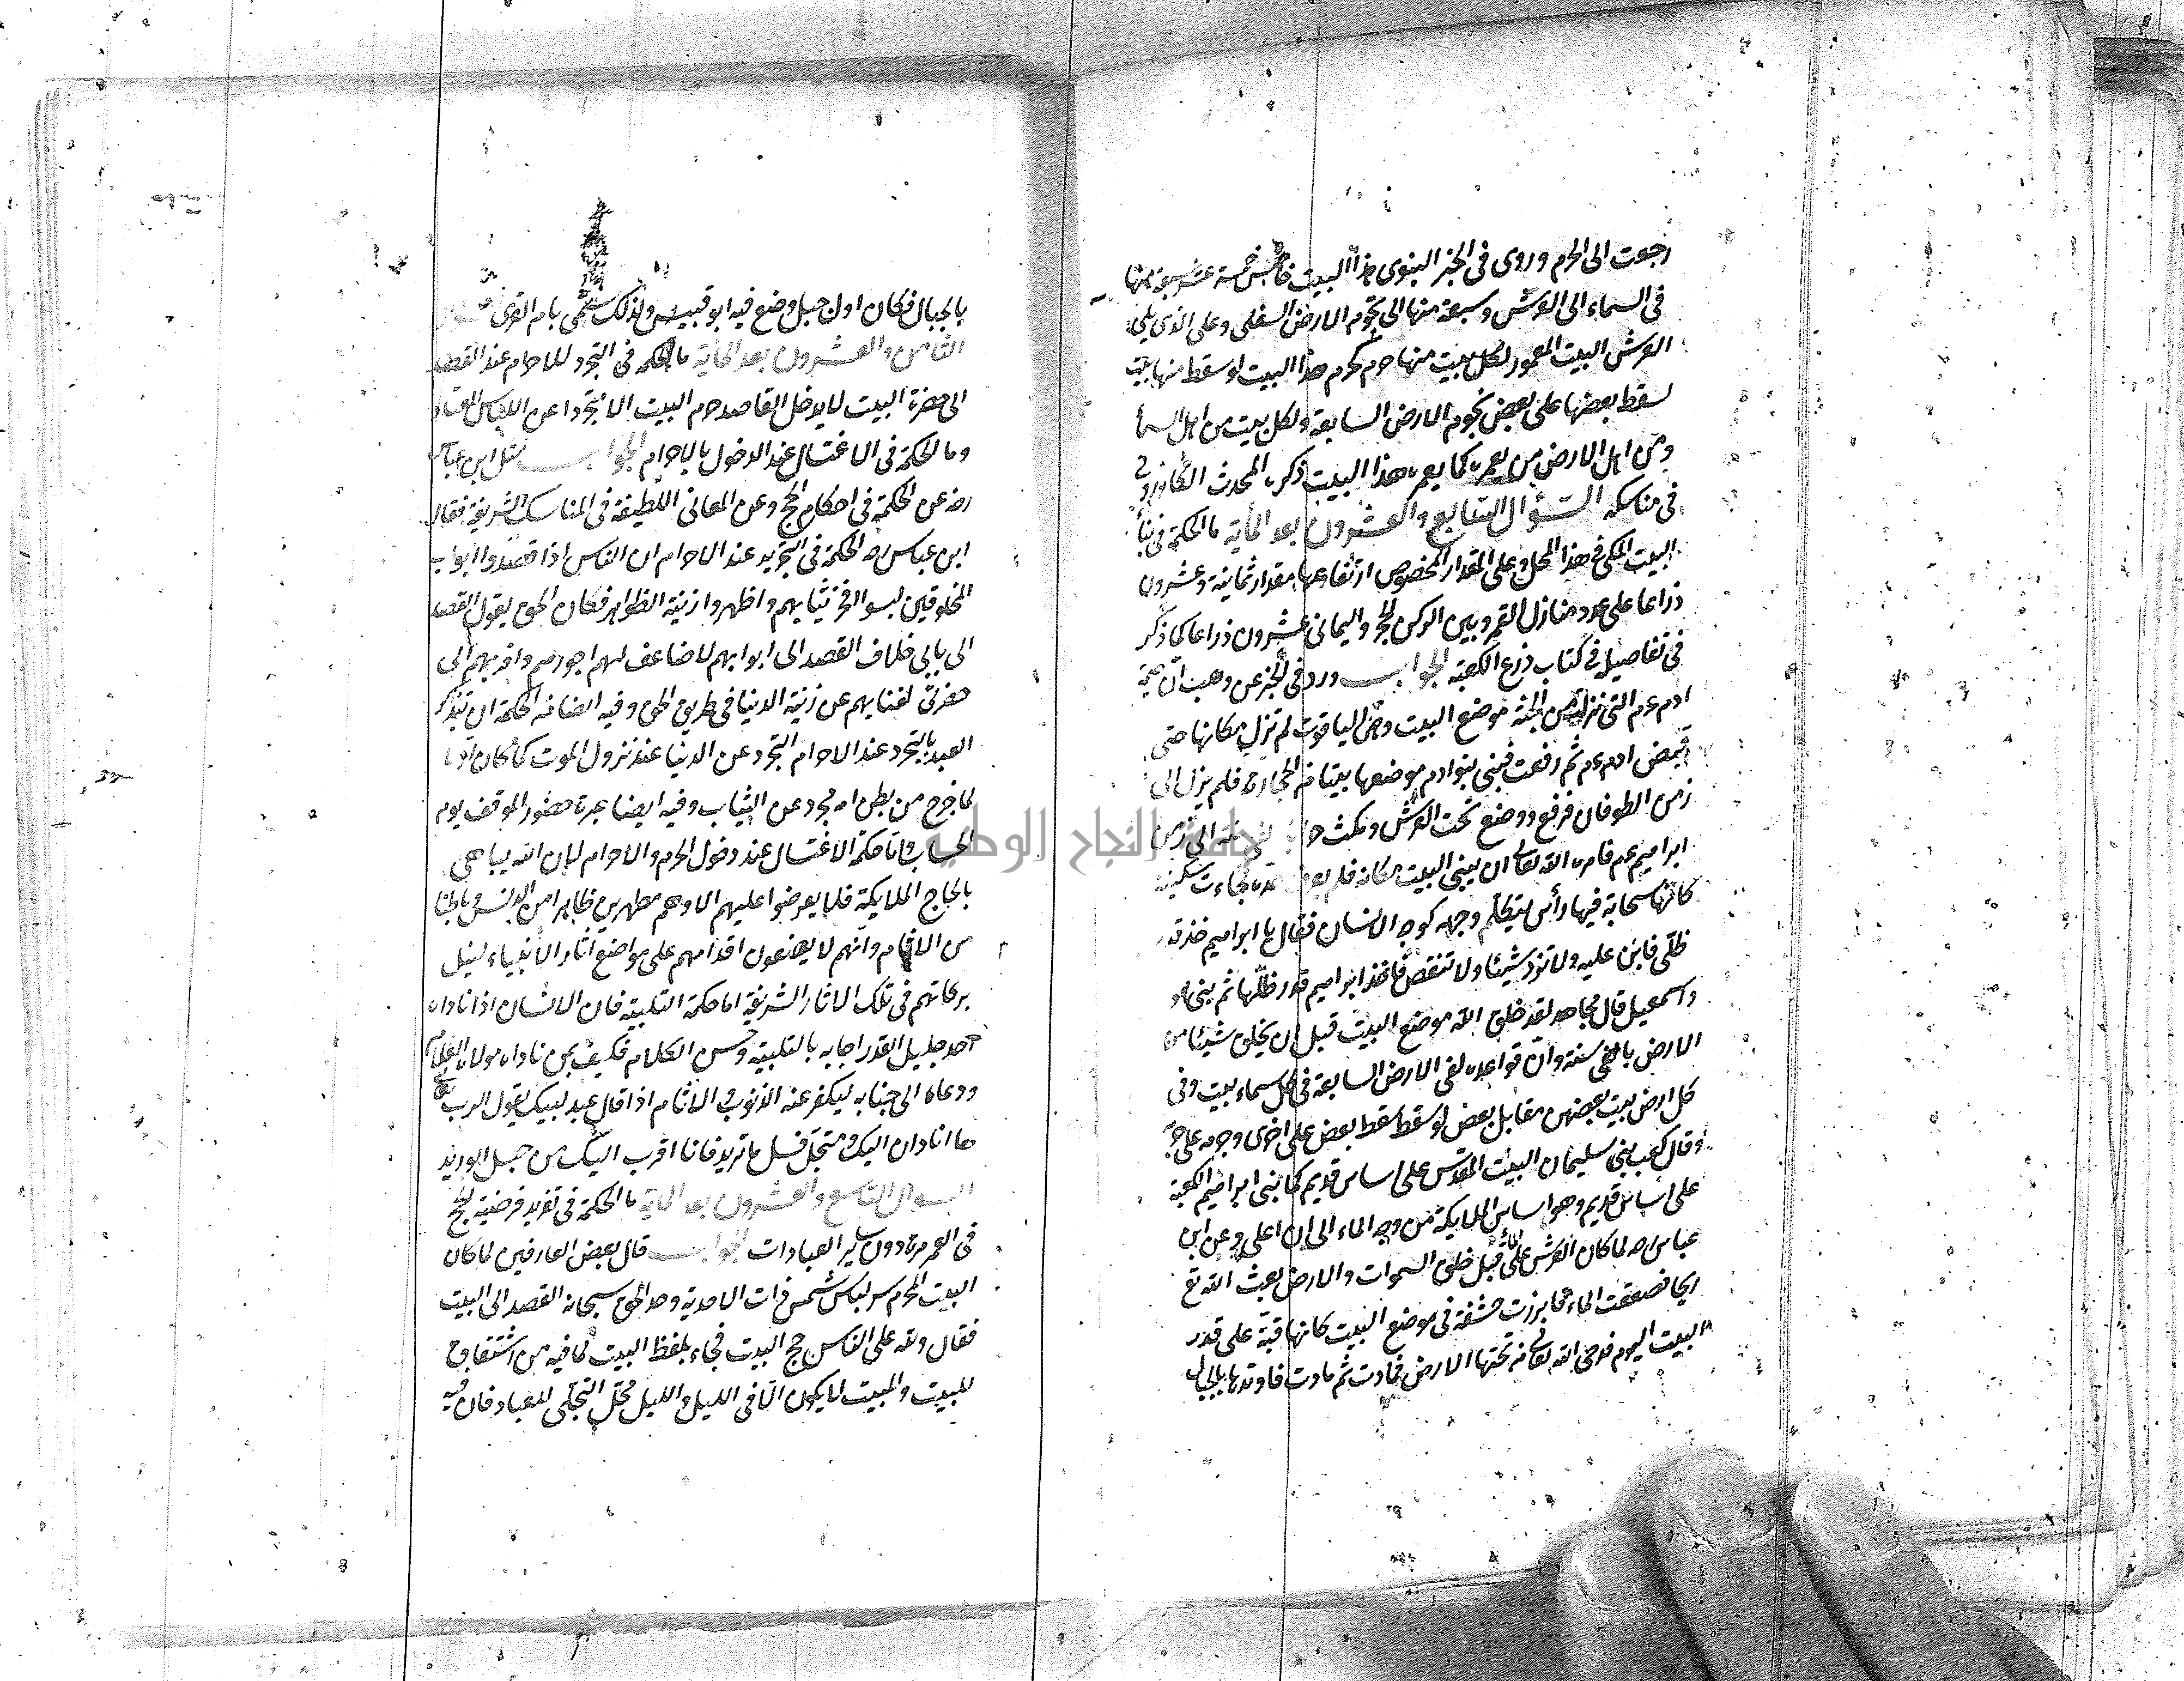 رجعت الى الحرم وروى فى الخبر النبوى هذا البيت خامس خمسة عشر سبعة منها
فى السماء الى العرش وسبعة منها الى تخوم الارض السفلى وعلى الذى يلى
العرش البيت المعمور لكل بيت منها حرم كحرم هذا البيت لو سقط منها بيت
لسقط بعضها على بعض تخوم الارض السابعة ولكل بيت من اهل السما
ومن اهل الارض من يعمره كما يعمر هذا البيت ذكره المحدث الكازرونى
فى مناسكه السؤال السابع والعشرون بعد المأية ما الحكمة فى بنأ
البيت المكى فى هذا المحل وعلى المقدار المخصوص ارتفاعها مقدار ثمانية وعشرون
ذراعا على عدد منازل القمر وبين الركن الحجر واليمانى عشرون ذراعا كما ذكر
فى تفاصيله فى كتاب ذرع الكعبة الجواب ورد فى الخبر عن وهب ان خيمة
ادم عم التى نزلت من الجنة موضع البيت وهى الياقوت لم تزل مكانها حتى
قبض ادم عم ثم رفعت فبنى بنو ادم موضعها بيتا من الحجارة فلم يزل الى
زمن الطوفان فرفع ووضع تحت العرش ومكث الى زمن
ابراهيم عم فامره الله تعالى ان يبنى البيت مكانه فلم فجاءت سكينة
كانها سحابة فيها رأس يتكلم وجهه كوجه الانسان فقال يا ابراهيم خذ قدر
ظلى فابن عليه ولا تزد شيئا ولا تنقص فاخذ ابراهيم قدر ظلها ثم بنى هو
واسمعيل قال مجاهد لقد خلق الله موضع البيت قبل ان يخلق شيئا من
الارض بالفى سنة وان قواعده لفى الارض السابعة فى كل سماء بيت وفى
كل ارض بيت بعضهن مقابل بعض لو سقط سقط بعض على اخرى
وقال كعب بنى سليمان البيت المقدس على اساس قديم كما بنى ابراهيم الكعبة
على اساس قديم وهو اساس الملايكة من وجه الماء الى ان اعلى وعن ابن
عباس رضه لما كان العرش على الماء قبل خلق السموات والارض بعث الله تع
ريحا فصفقت الماء فابرزت خشفة فى موضع البيت كانها قبة على قدر
البيت اليوم فدحى الله تعالى من تحتها الارض فمادت ثم مادت فاوتدها بالجبال
بالجبال فكان اول جبل وضع فيه ابو قبيس ولذلك سمى بام القرى
الثامن والعشرون بعد المأية ما الحكمة فى التجرد للاحرام عند القصد
الى حضرة البيت لا يدخل القاصد حرم البيت الا متجردا عن اللباس المعتاد
وما الحكمة فى الاغتسال عند الدخول بالاحرام الجواب سئل ابن عباس
رضه عن الحكمة فى احكام الحج وعن المعانى اللطيفة فى المناسك الشريفة فقال
ابن عباس رضه الحكمة فى التجريد عند الاحرام ان الناس اذا قصدوا ابواب
المخلوقين لبسوا افخر ثيابهم واظهروا زينة الظواهر فكان الحق يقول القصد
الى بابى خلاف القصد الى ابوابهم لاضاعف لهم اجورهم واقربهم الى
حضرتى لفنايهم عن زينة الدنيا فى طريق الحق وفيه ايضا من الحكمة ان يتذكر
العبد بالتجرد عند الاحرام التجرد عن الدنيا عند نزول الموت كما كان اولا
لما خرج من بطن امه مجرد عن الثياب وفيه ايضا عبرة حضور الموقف يوم
الحساب واما حكمة الاغتسال عند دخول الحرم والاحرام لان الله يباهى
بالحاج الملايكة فلا يعرضوا عليهم الا وهم مطهرين ظاهرا من الدنس وباطنا
من الاثام وانهم لا يضعون اقدامهم على مواضع اثار الانبياء لنيل
بركاتهم فى تلك الاثار الشريفة اما حكمة التلبية فان الانسان اذا ناداه
احد جليل القدر اجابه بالتلبية وحسن الكلام فكيف بمن ناداه مولاه العلام
ودعاه الى جنابه ليكفر عنه الذنوب والاثام اذا قال عبد لبيك يقول الرب تعالى
ها انا دان اليك ومتجل فسل ما تريد فانا اقرب اليك من حبل الوريد
السؤال التاسع والعشرون بعد المأية ما الحكمة فى تفريد فرضية الحج
فى العمر مرة دون ساير العبادات الجواب قال بعض العارفين لما كان
البيت المحرم سر لباس شمس ذات الاحدية وحد الحق سبحانه القصد الى البيت
فقال ولله على الناس حج البيت فجاء بلفظ البيت لما فيه من اشتقاق
للبيت والمبيت لا يكون الا فى الليل والليل محل التجلى للعباد فان فيه
جامعة النجاح الوطنية